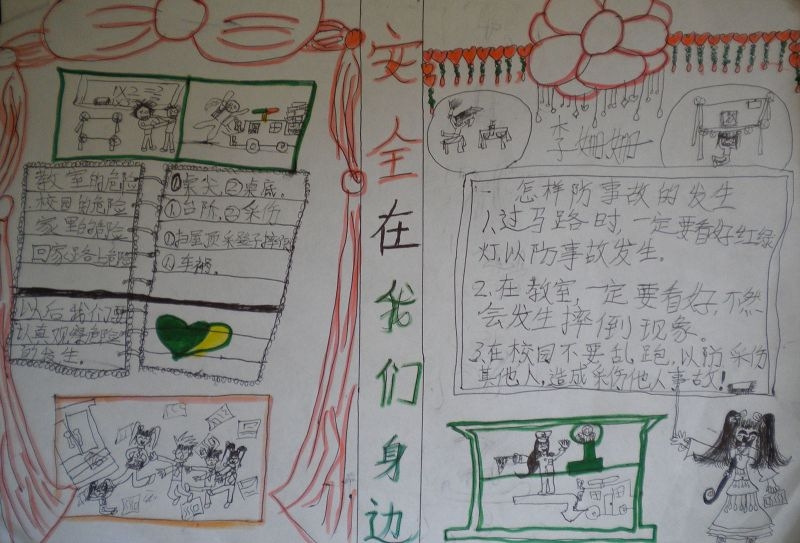 1×2=2
教室的危险
校园的危险
家里的危险
回家路上危险
以后我们要
认真观察危险
的发生。
①桌尖,②桌底。
①台阶,②采伤
①扫屋顶采凳子摔倒
①车祸。
安全在我们身边
李姗姗
一 怎样防事故的发生
1.过马路时,一定要看好红绿
灯,以防事故发生。
2.在教室,一定要看好,不然
会发生摔倒现象。
3.在校园不要乱跑,以防采伤
其他人,造成采伤他人事故!